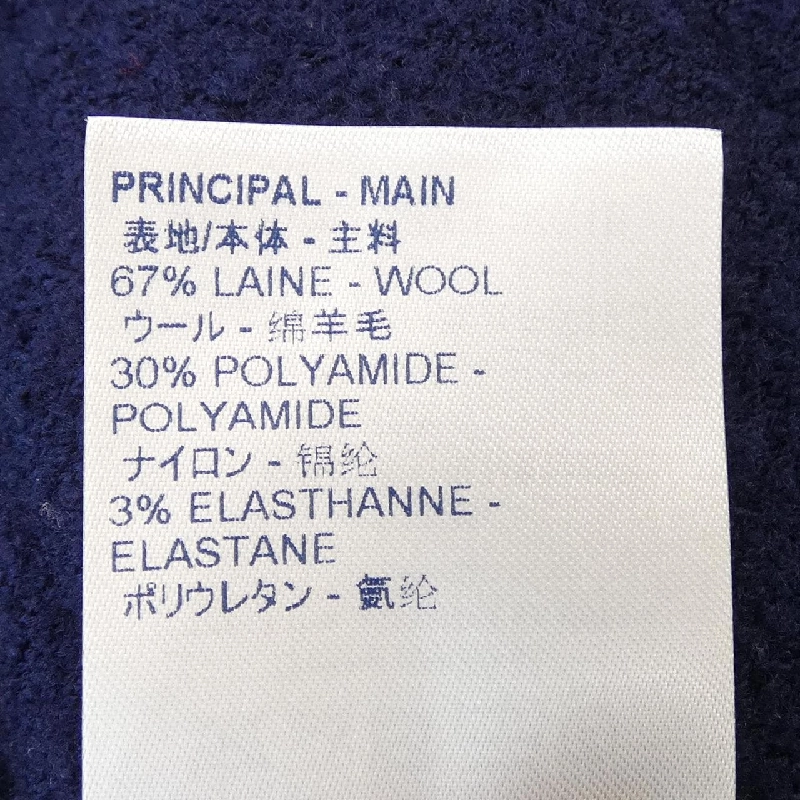 PRINCIPAL - MAIN
表地/本体 - 主料
67% LAINE - WOOL
ウール - 绵羊毛
30% POLYAMIDE -
POLYAMIDE
ナイロン - 锦纶
3% ELASTHANNE -
ELASTANE
ポリウレタン - 氨纶